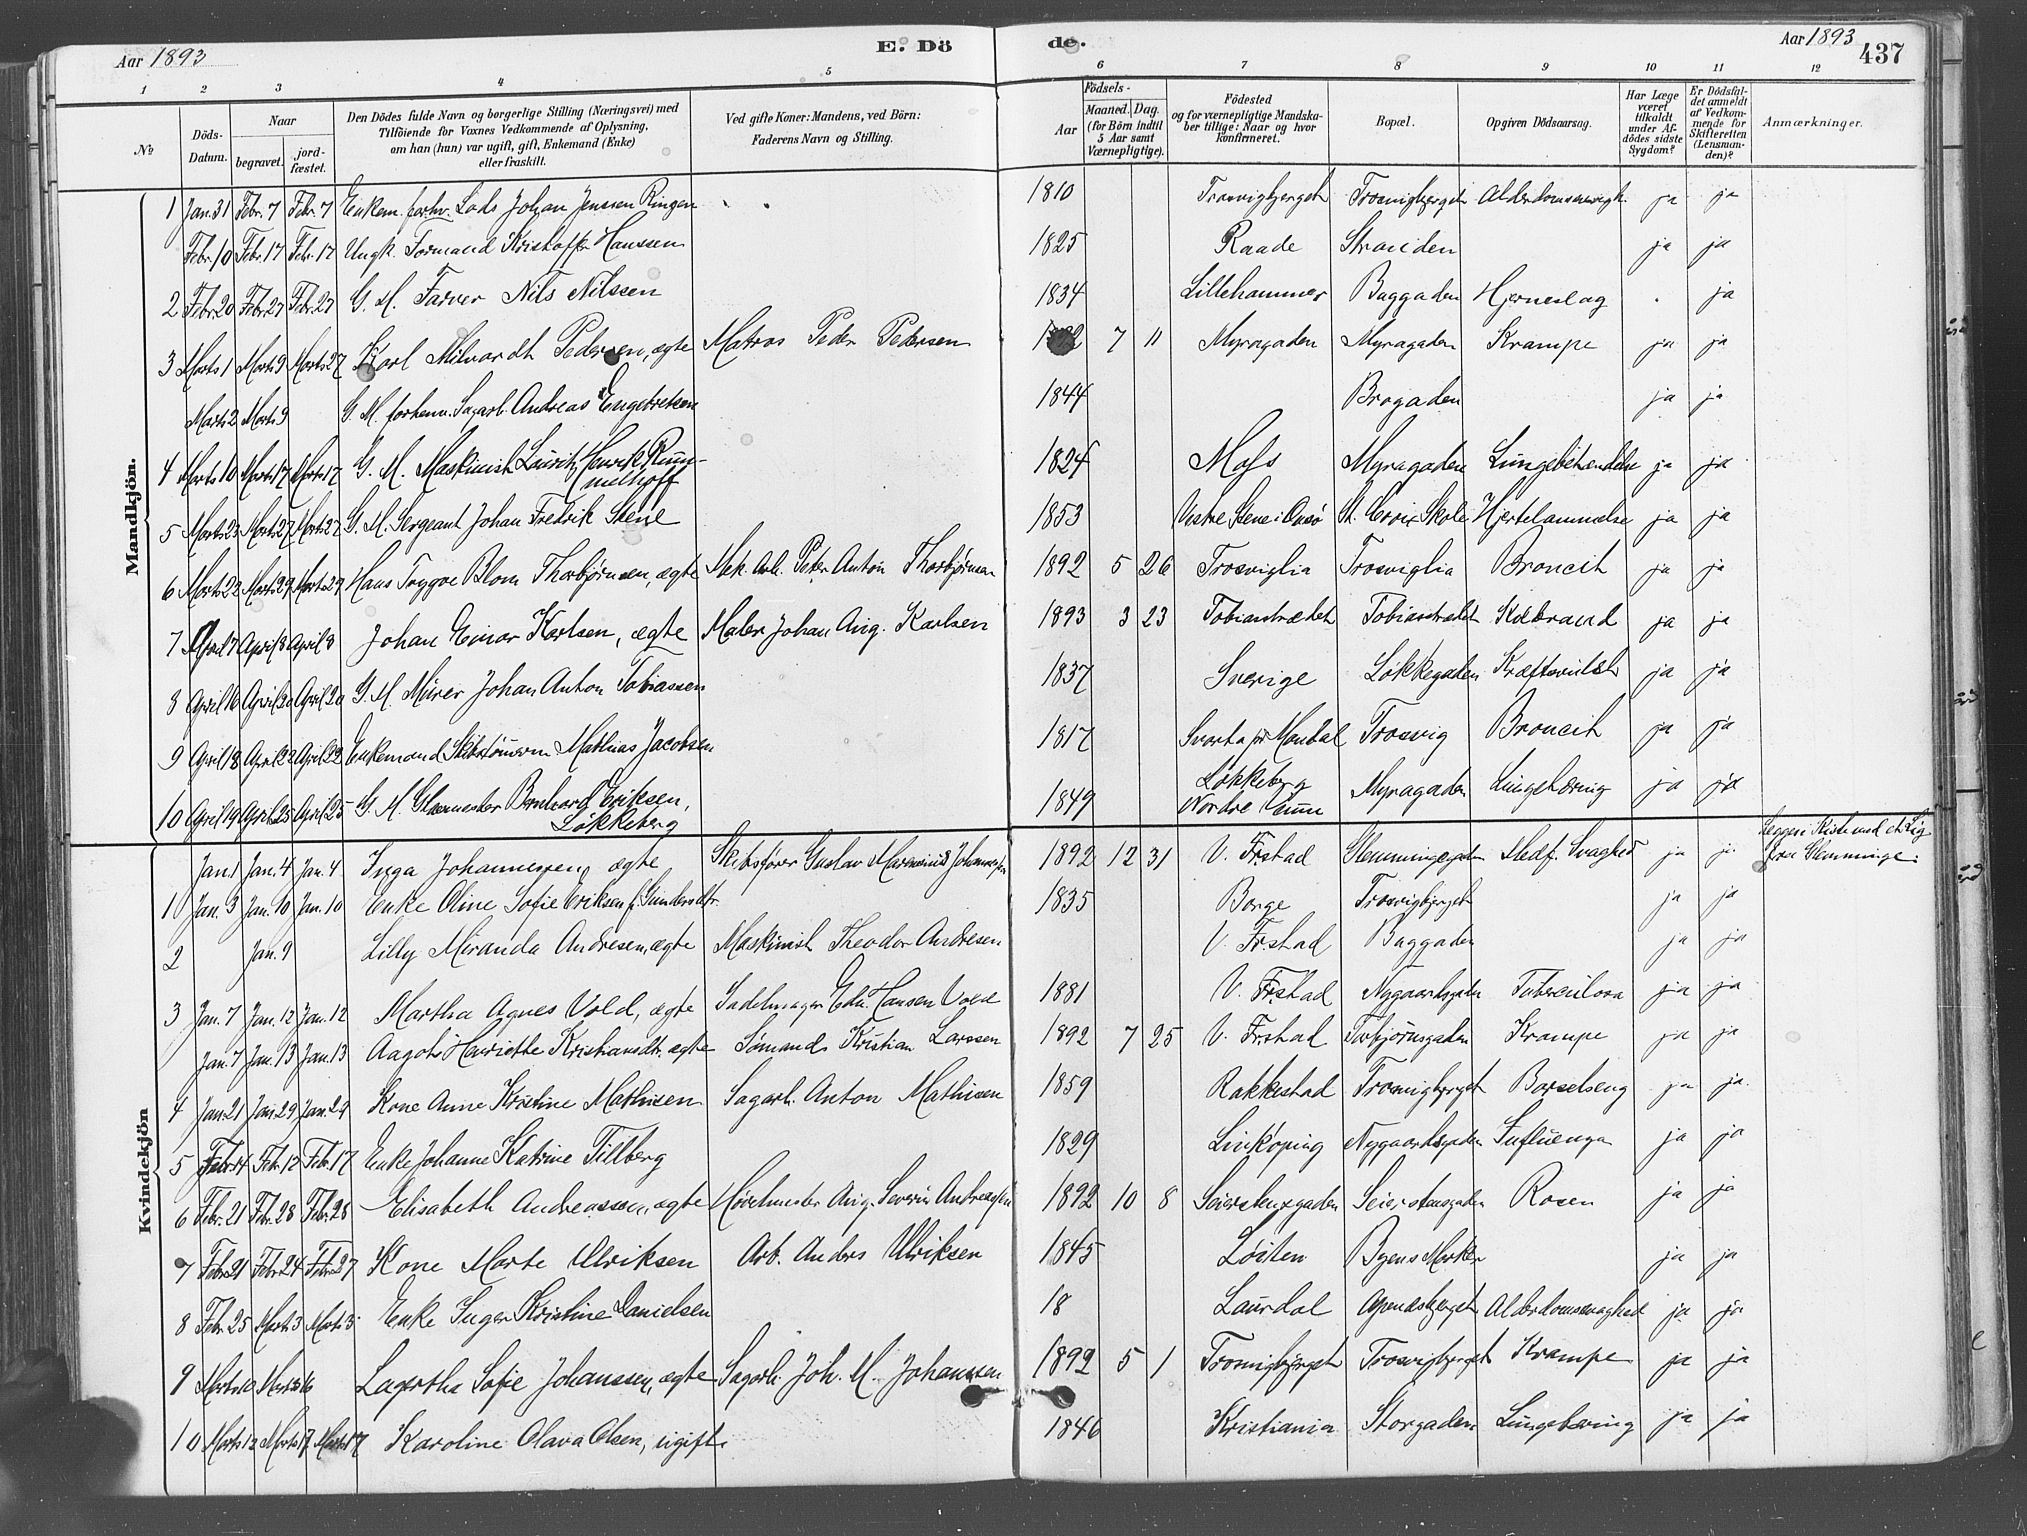 Aar 1893
E. Dö
de.
Aar 1893
437
1 2 3 4 5 6 7 8 9 10 11 12
№
Döds-Datum.
Naar
begravet.
jord-fæstet.
Den Dödes fulde Navn og borgerlige Stilling (Næringsvei) med
Tilföiende for Voxnes Vedkommende af Oplysning,
om han (hun) var ugift, gift, Enkemand (Enke)
eller fraskilt.
Ved gifte Koner: Mandens, ved Börn:
Faderens Navn og Stilling.
Födsels-
Aar
Maaned. Dag.
(for Börn indtil
5 Aar samt
Værnepligtige).
Födested
og for værnepligtige Mandska-
ber tillige: Naar og hvor
konfirmeret.
Bopæl.
Opgiven Dödsaarsag.
Har Læge
været
tilkaldt
under Af-
dödes sidste
Sygdom?
Er Dödsfal-
det anmeldt
af Vedkom-
mende for
Skifteretten
(Lensman-
den)?
Anmærkninger.
Mandkjön.
1 Jan. 31 Febr. 7 Febr. 7 Enkem. forhv. Lods Johan Jenssen Ringen 1810 Trosvigbjerget Trosvigbjerget ja ja
Febr. 10 Febr. 17 Febr. 17 Ungk. Formand Kristoffer Hanssen 1825 Raade Stranden ja ja
2 Febr. 20 Febr. 27 Febr. 27 G. M. Farver Nils Nilssen 1834 Lillehammer Baggaden Hjerneslag ja
3 Marts 1 Marts 9 Marts 27 Karl Milvardt Pedersen, ægte Matros Peder Pedersen 7 11 Myragaden Myragaden Krampe ja ja
Marts 2 Marts 9 G. M. forhenv. Sagarb. Andreas Engebretsen 1844 Brogaden ja ja
4 Marts 10 Marts 17 Marts 17 G. M. Maskinist Lauritz Henrik Rum-
melhoff 1824 Moss Myragaden Lungebetændelse ja ja
5 Marts 23 Marts 27 Marts 27 G. M. Sergeant Johan Fredrik Stene 1853 Vestre Stene i Onsø St. Croix Skole Hjertelammelse ja ja
6 Marts 22 Marts 29 Marts 29 Hans Trygve Blom Thorbjørnsen, ægte Mek. Arb. Peter Anton Thorbjørnsen 1892 5 26 Trosviglia Trosviglia Broncit ja ja
7 April 7 April 8 April 8 Johan Einar Karlsen, ægte Maler Johan Aug. Karlsen 1893 3 23 Tobiastrædet Tobiastrædet Koldbrand ja ja
8 April 16 April 20 April 20 G. M. Murer Johan Anton Tobiassen 1837 Sverige Løkkegaden Kræftsvulst ja ja
9 April 18 April 22 April 22 Enkemand Skibstømmerm Mathias Jacobsen 1817 Svarta pr Mandal Trosvig Broncit ja ja
10 April 19 April 25 April 25 G. M. Glarmester Bernhard Eriksen,
Løkkeberg 1849 Løkkeberg
Nordre Myragaden Lungetæring ja ja
Kvindekjön
Jan. 1 Jan. 4 Jan. 4 Inga Johannessen, ægte Skibsfører Gustav Marinius Johannessen 1892 12 31 V. Frstad Glemmingegaden Medf. Svaghed ja ja Lægges i Kiste med et Lig
fra Glemminge.
1 Jan. 3 Jan. 10 Jan. 10 Enke Oline Sofie Eriksen f. Gundersdtr. 1835 Borge Trosvigbjerget ja ja
2 Jan. 9 Lilly Miranda Andresen, ægte Maskinist Theodor Andresen V. Frstad Baggaden ja ja
3 Jan. 7 Jan. 12 Jan. 12 Martha Agnes Vold, ægte Sadelmager Edv. Hansen Vold 1881 V. Frstad Nygaardsgaden Tuberculosa ja ja
Jan. 7 Jan. 13 Jan. 13 Aagot Henriette Kristiansdtr. ægte Sømand Kristian Larssen 1892 7 25 V. Frstad Torbjørnsgaden Krampe ja ja
4 Jan. 21 Jan. 29 Jan. 29 Kone Anne Kristine Mathisen Sagarb. Anton Mathisen 1859 Rakkestad Trosvigbjerget Barselseng ja ja
5 Febr. 4 Febr. 12 Febr. 17 Enke Johanne Katrine Tillberg 1829 Linköping Nygaardsgaden Influenza ja ja
6 Febr. 21 Febr. 28 Febr. 28 Elisabeth Andreassen, ægte Høvelmester Aug. Severin Andreassen 1892 10 8 Seierstensgaden Seierstensgaden Rosen ja ja
7 Febr. 21 Febr. 24 Febr. 27 Kone Marte Ulriksen Arb. Anders Ulriksen 1845 Løiten Byens Marker ja ja
8 Febr. 25 Marts 3 Marts 3 Enke Inger Kristine Danielsen 18 Laurdal Apenæsbjerget Alderdomssvaghed ja ja
9 Marts 10 Marts 16 Lagertha Sofie Johanssen, ægte Sagarb. Joh. M. Johanssen 1892 5 1 Trosvigbjerget Trosvigbjerget Krampe ja ja
10 Marts 12 Marts 17 Marts 17 Karoline Olava Olsen, ugift. 1846 Kristiania Storgaden Lungetæring ja ja